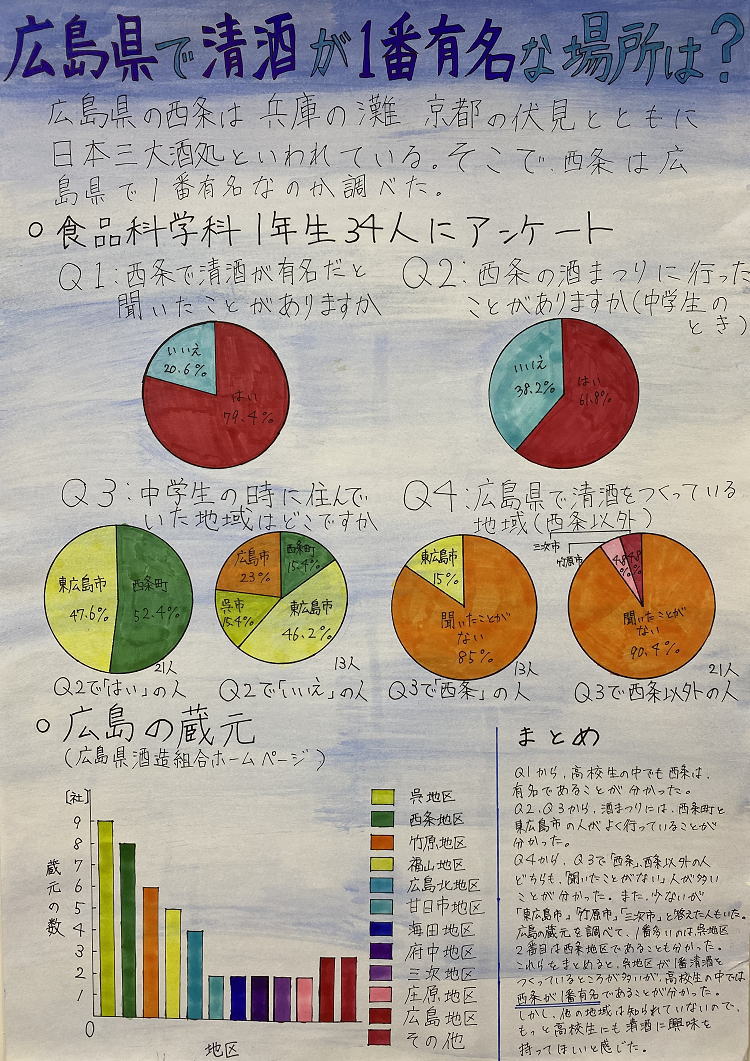 広島県で清酒が1番有名な場所は?
広島県の西条は兵庫の灘 京都の伏見とともに
日本三大酒処といわれている。そこで、西条は広
島県で1番有名なのか調べた。
○食品科学科1年生34人にアンケート
Q1:西条で清酒が有名だと
聞いたことがありますか
いいえ
20.6%
はい
79.4%
Q2:西条の酒まつりに行った
ことがありますか(中学生の
とき)
いいえ
38.2%
はい
61.8%
Q3:中学生の時に住んで
いた地域はどこですか
東広島市
47.6%
西条町
52.4%
21人
Q2で「はい」の人
広島市
23%
西条町
15.4%
呉市
15.4%
東広島市
46.2%
13人
Q2で「いいえ」の人
Q4:広島県で清酒をつくっている
地域(西条以外)
東広島市
15%
聞いたことが
ない
85%
13人
Q3で「西条」の人
三次市
竹原市
4.8%
4.8%
聞いたことが
ない
90.4%
21人
Q3で西条以外の人
○広島の蔵元
(広島県酒造組合ホームページ)
[社]
9
8
7
6
5
4
3
2
1
0
蔵元の数
地区
呉地区
西条地区
竹原地区
福山地区
広島北地区
甘日市地区
海田地区
府中地区
三次地区
庄原地区
広島地区
その他
まとめ
Q1から、高校生の中でも西条は、
有名であることが分かった。
Q2、Q3から、酒まつりには、西条町と
東広島市の人がよく行っていることが
分かった。
Q4から、Q3で「西条」、西条以外の人
どちらも、「聞いたことがない」人が多い
ことが分かった。また、少ないが
「東広島市」「竹原市」「三次市」と答えた人もいた。
広島の蔵元を調べて、1番多いのは呉地区
2番目は西条地区であることも分かった。
これらをまとめると、呉地区が1番清酒を
つくっているところが多いが、高校生の中では
西条が1番有名であることが分かった。
しかし、他の地域は知られていないので、
もっと高校生にも清酒に興味を
持ってほしいと感じた。